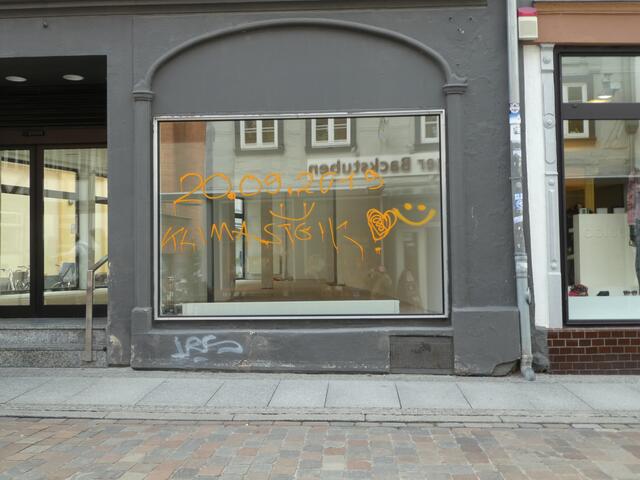 er Backstuben
20.09.2019
KLIMASTEIK